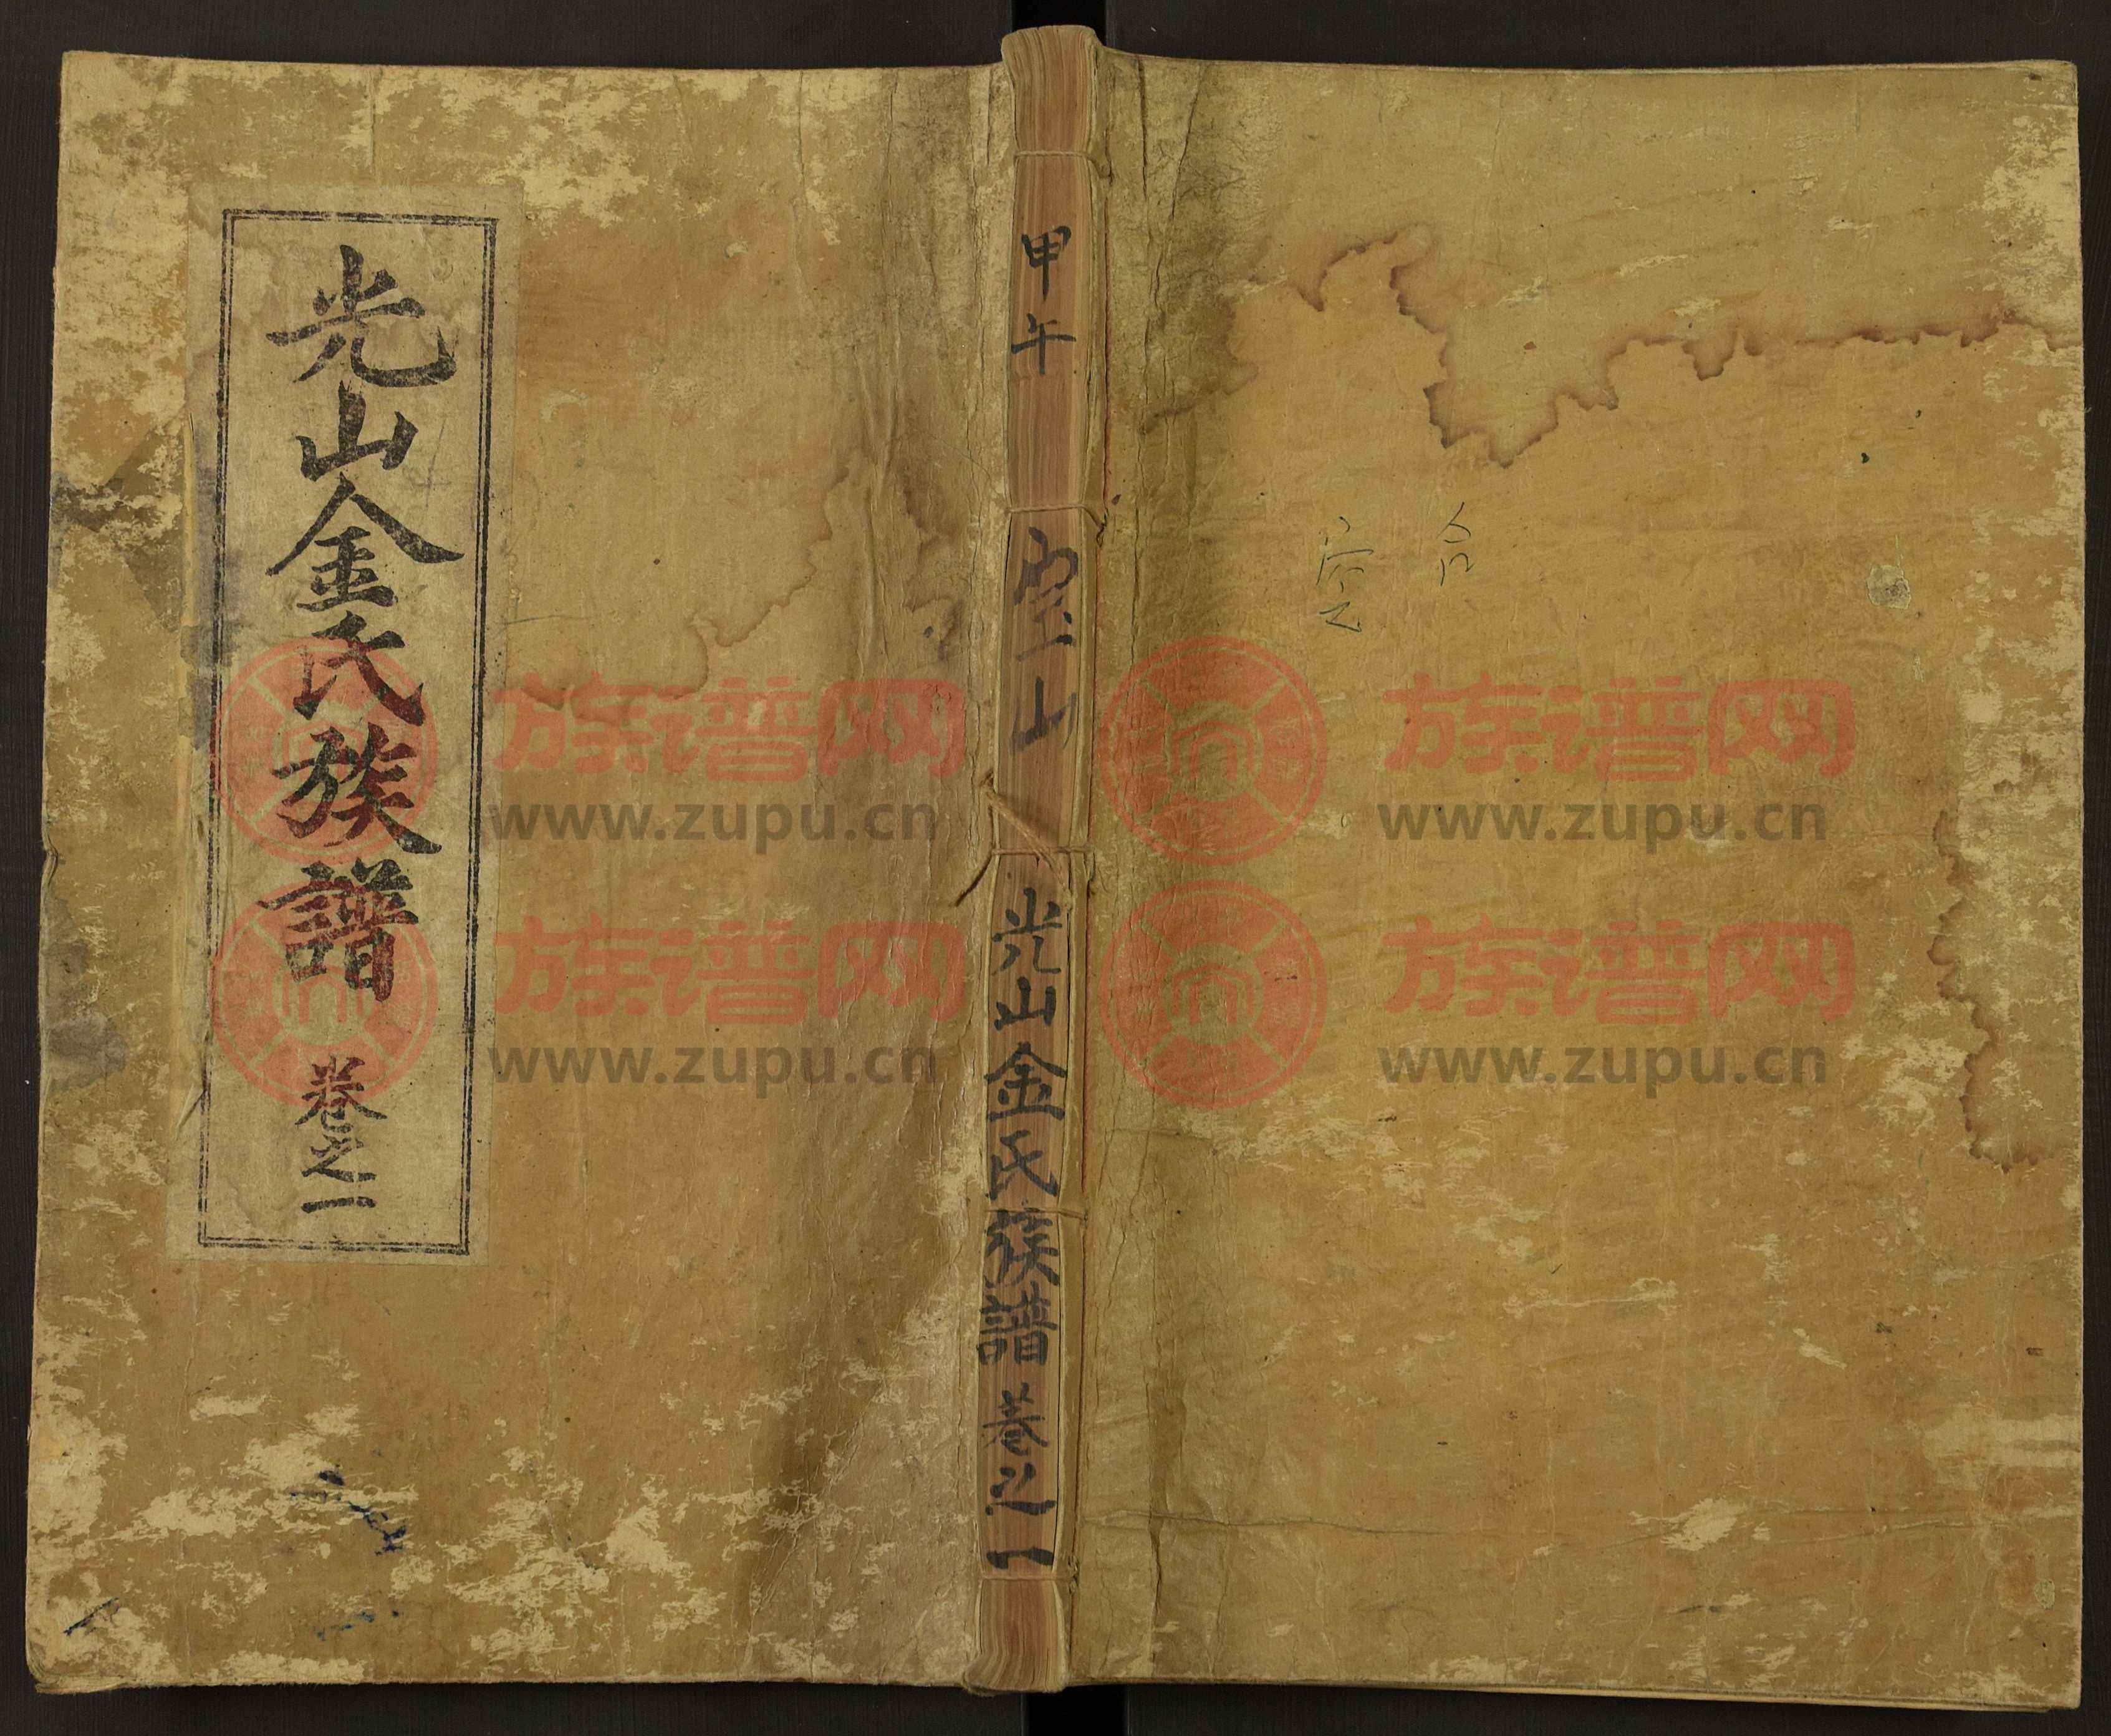 光山金氏族譜 卷之一
甲午
山
光山金氏族譜 卷之一
族谱网
www.zupu.cn
族谱网
www.zupu.cn
族谱网
www.zupu.cn
族谱网
www.zupu.cn